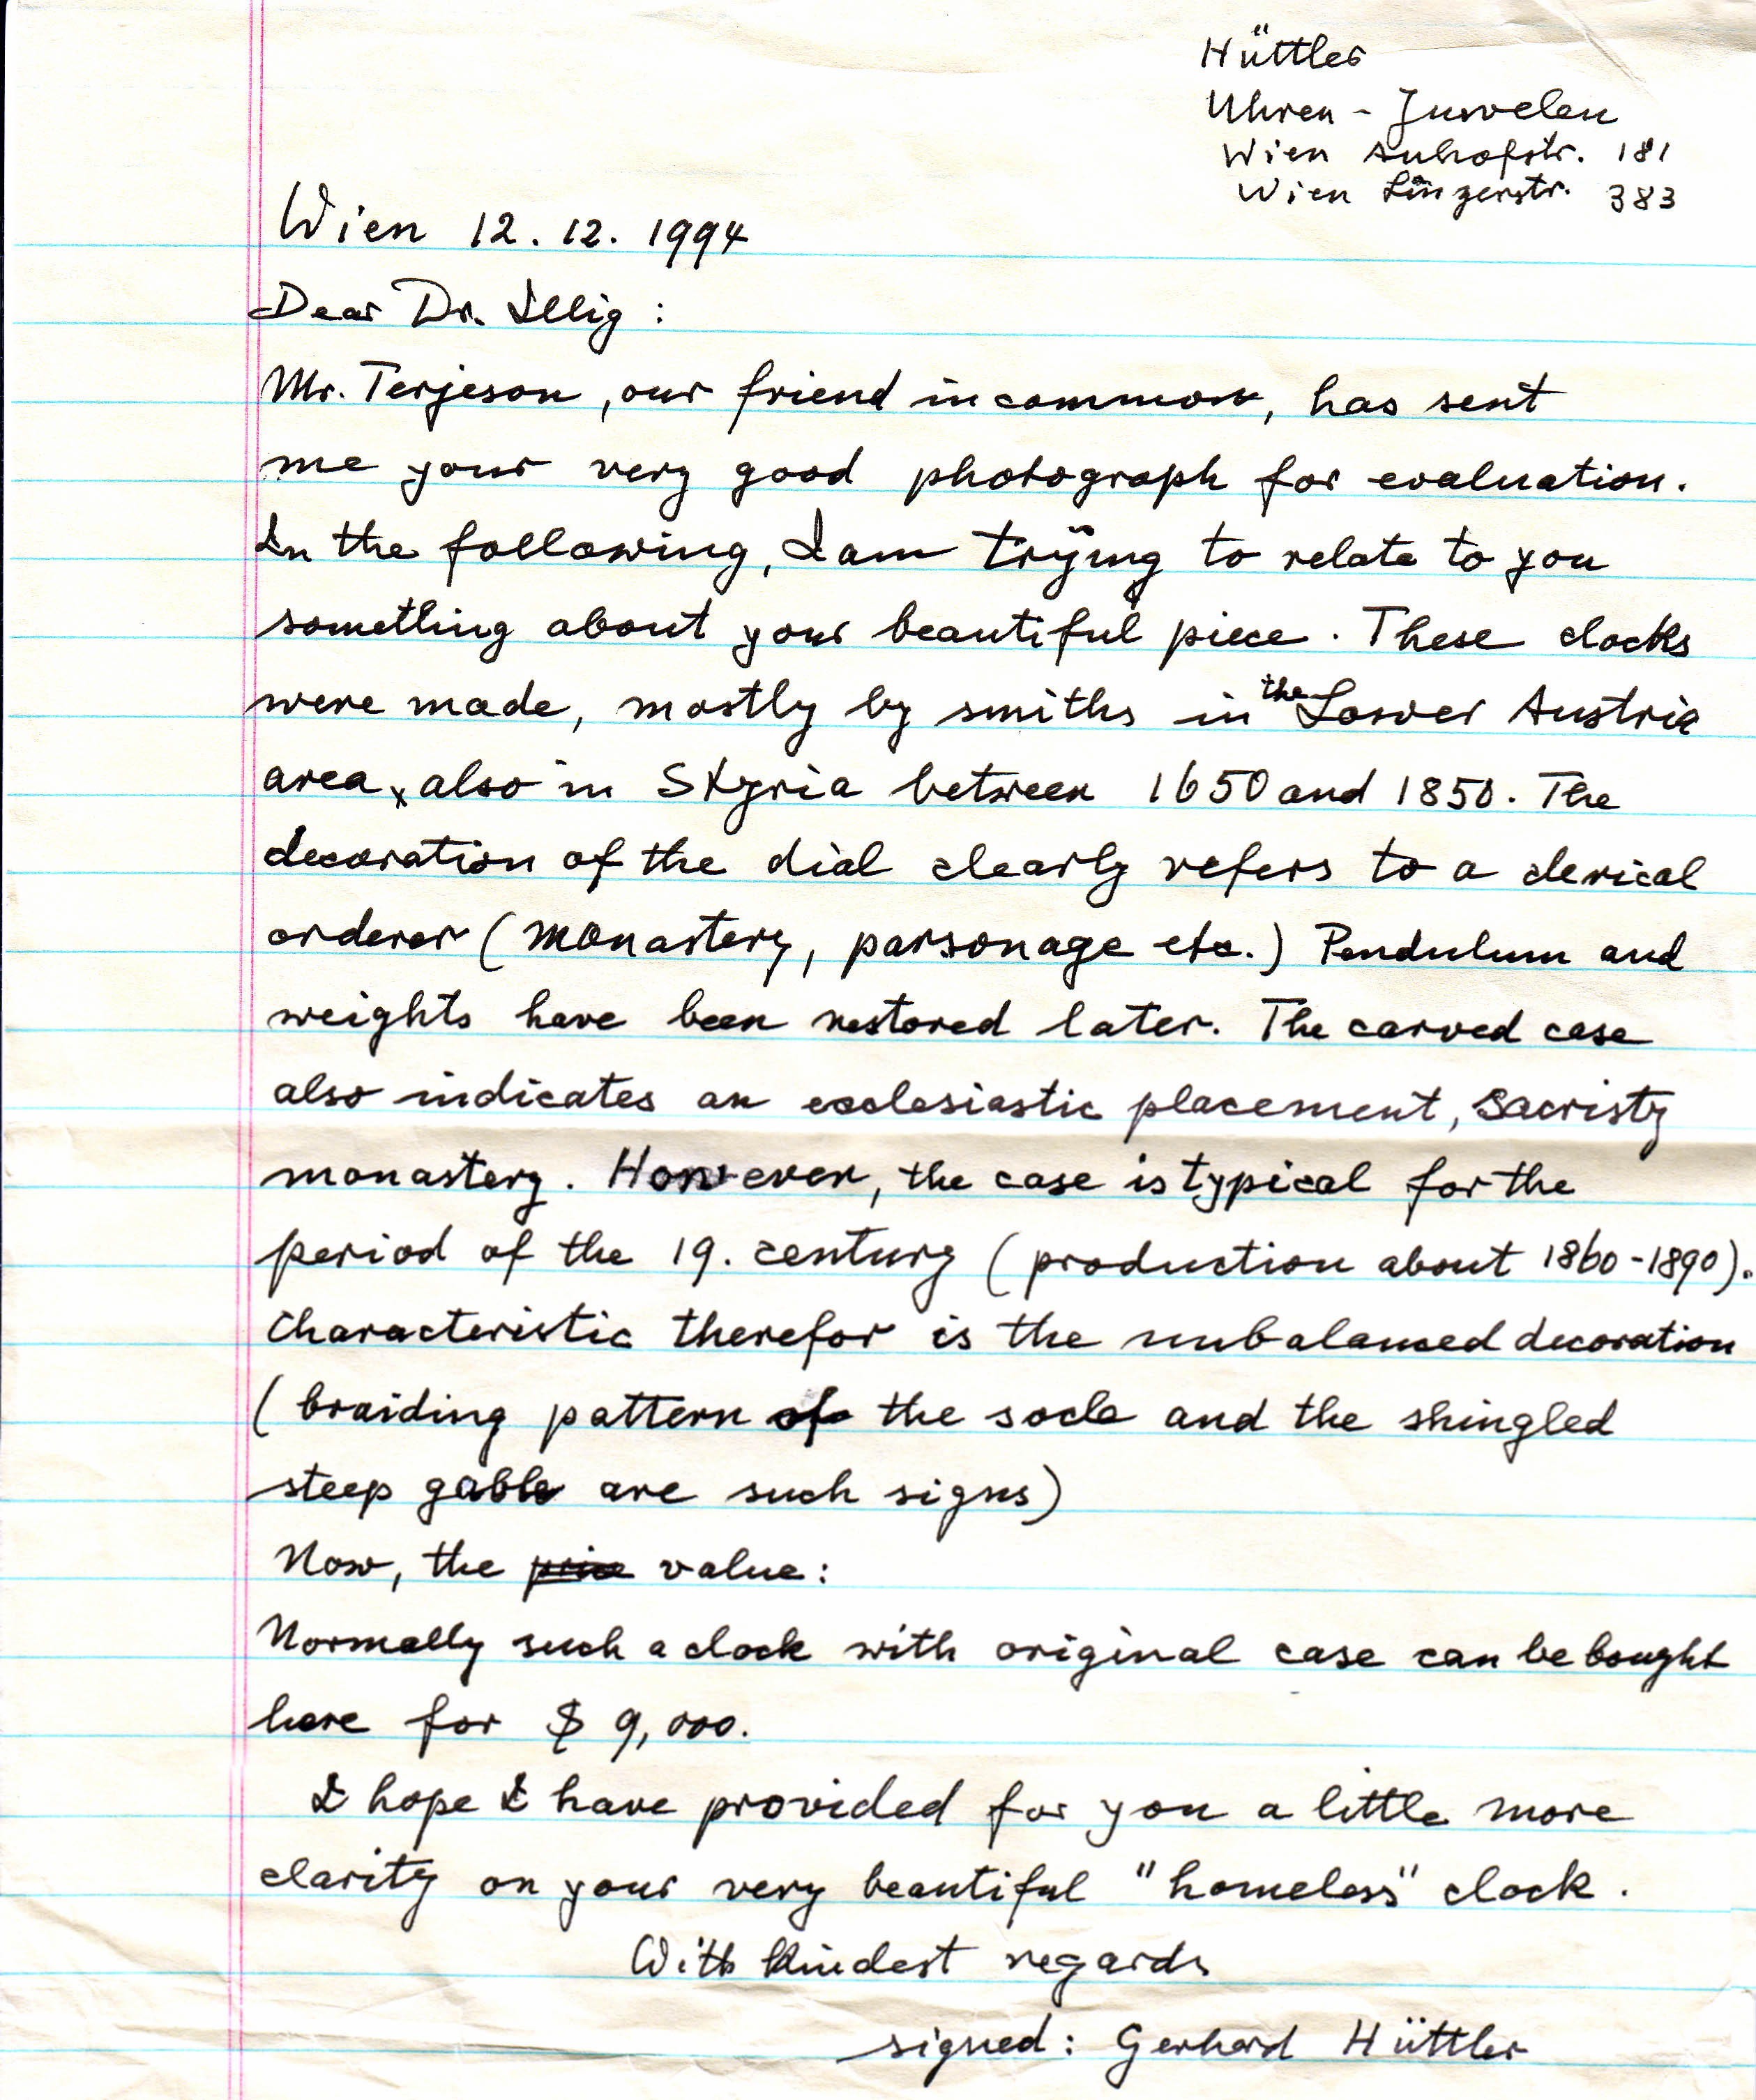 Hüttler
Uhren - Juwelen
Wien Auhofstr. 181
Wien Linzerstr. 383
Wien 12. 12. 1994
Dear Dr. Illig :
Mr. Terjeson, our friend in common, has sent
me your very good photograph for evaluation.
In the following, I am trying to relate to you
something about your beautiful piece. These clocks
were made, mostly by smiths in the Lower Austria
area, also in Styria between 1650 and 1850. The
decoration of the dial clearly refers to a clerical
orderer (monastery, parsonage etc.) Pendulum and
weights have been restored later. The carved case
also indicates an ecclesiastic placement, sacristy
monastery. However, the case is typical for the
period of the 19. century (production about 1860-1890).
Characteristic therefor is the unbalanced decoration
(braiding pattern of the socle and the shingled
steep gable are such signs)
Now, the price value:
Normally such a clock with original case can be bought
here for $ 9,000.
I hope I have provided for you a little more
clarity on your very beautiful "homeless" clock.
With kindest regards
signed: Gerhard Hüttler